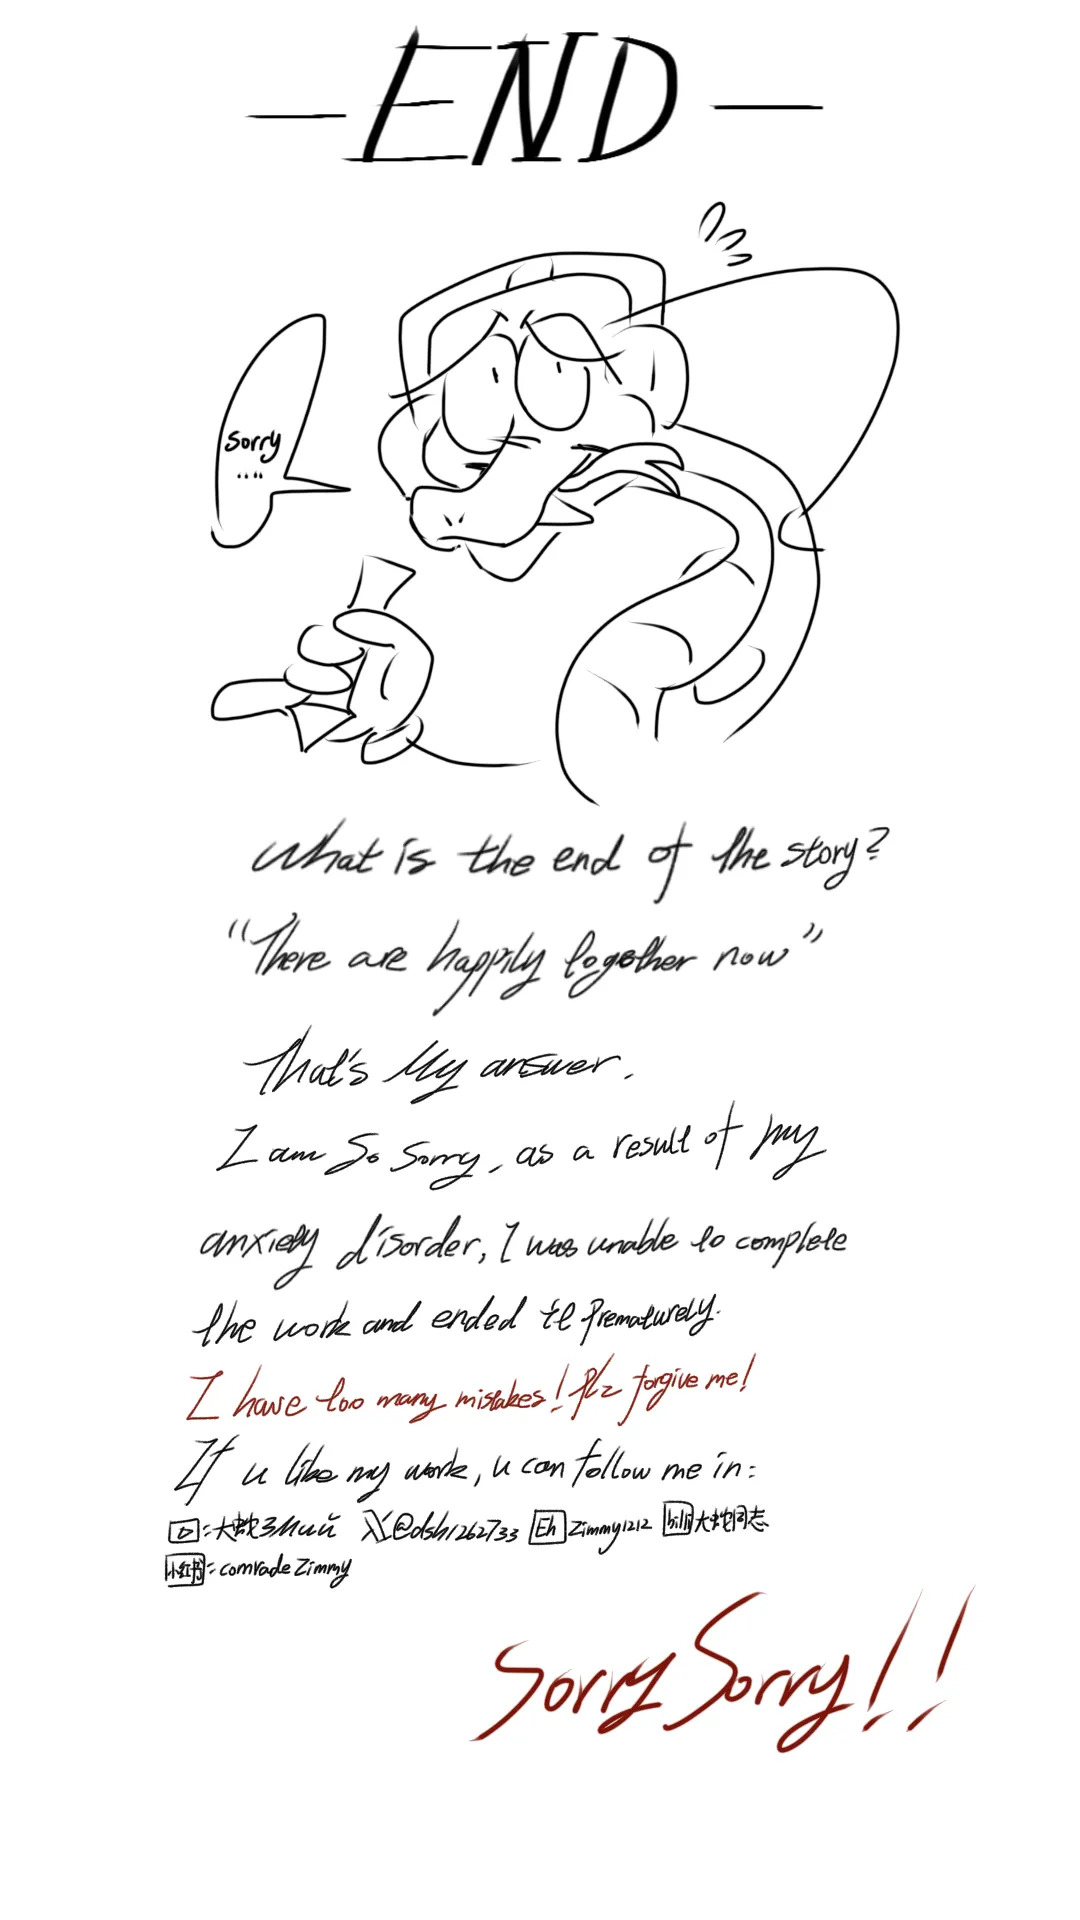 —END—
Sorry
....
What is the end of the story?
"There are happily together now"
That's My answer.
I am So Sorry, as a result of my
anxiety disorder, I was unable to complete
the work and ended it Prematurely.
I have too many mistakes! Plz forgive me!
If u like my work, u can follow me in:
:大蛇 X@dsh1262733 Eh Zimmy1212 bili大蛇同志
小红书:comrade Zimmy
Sorry Sorry!!